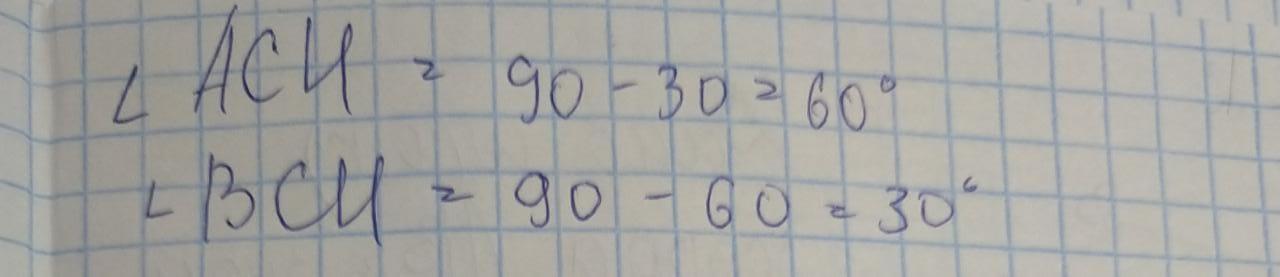 ∠ ACH = 90 - 30 = 60°
∠ BCH = 90 - 60 = 30°